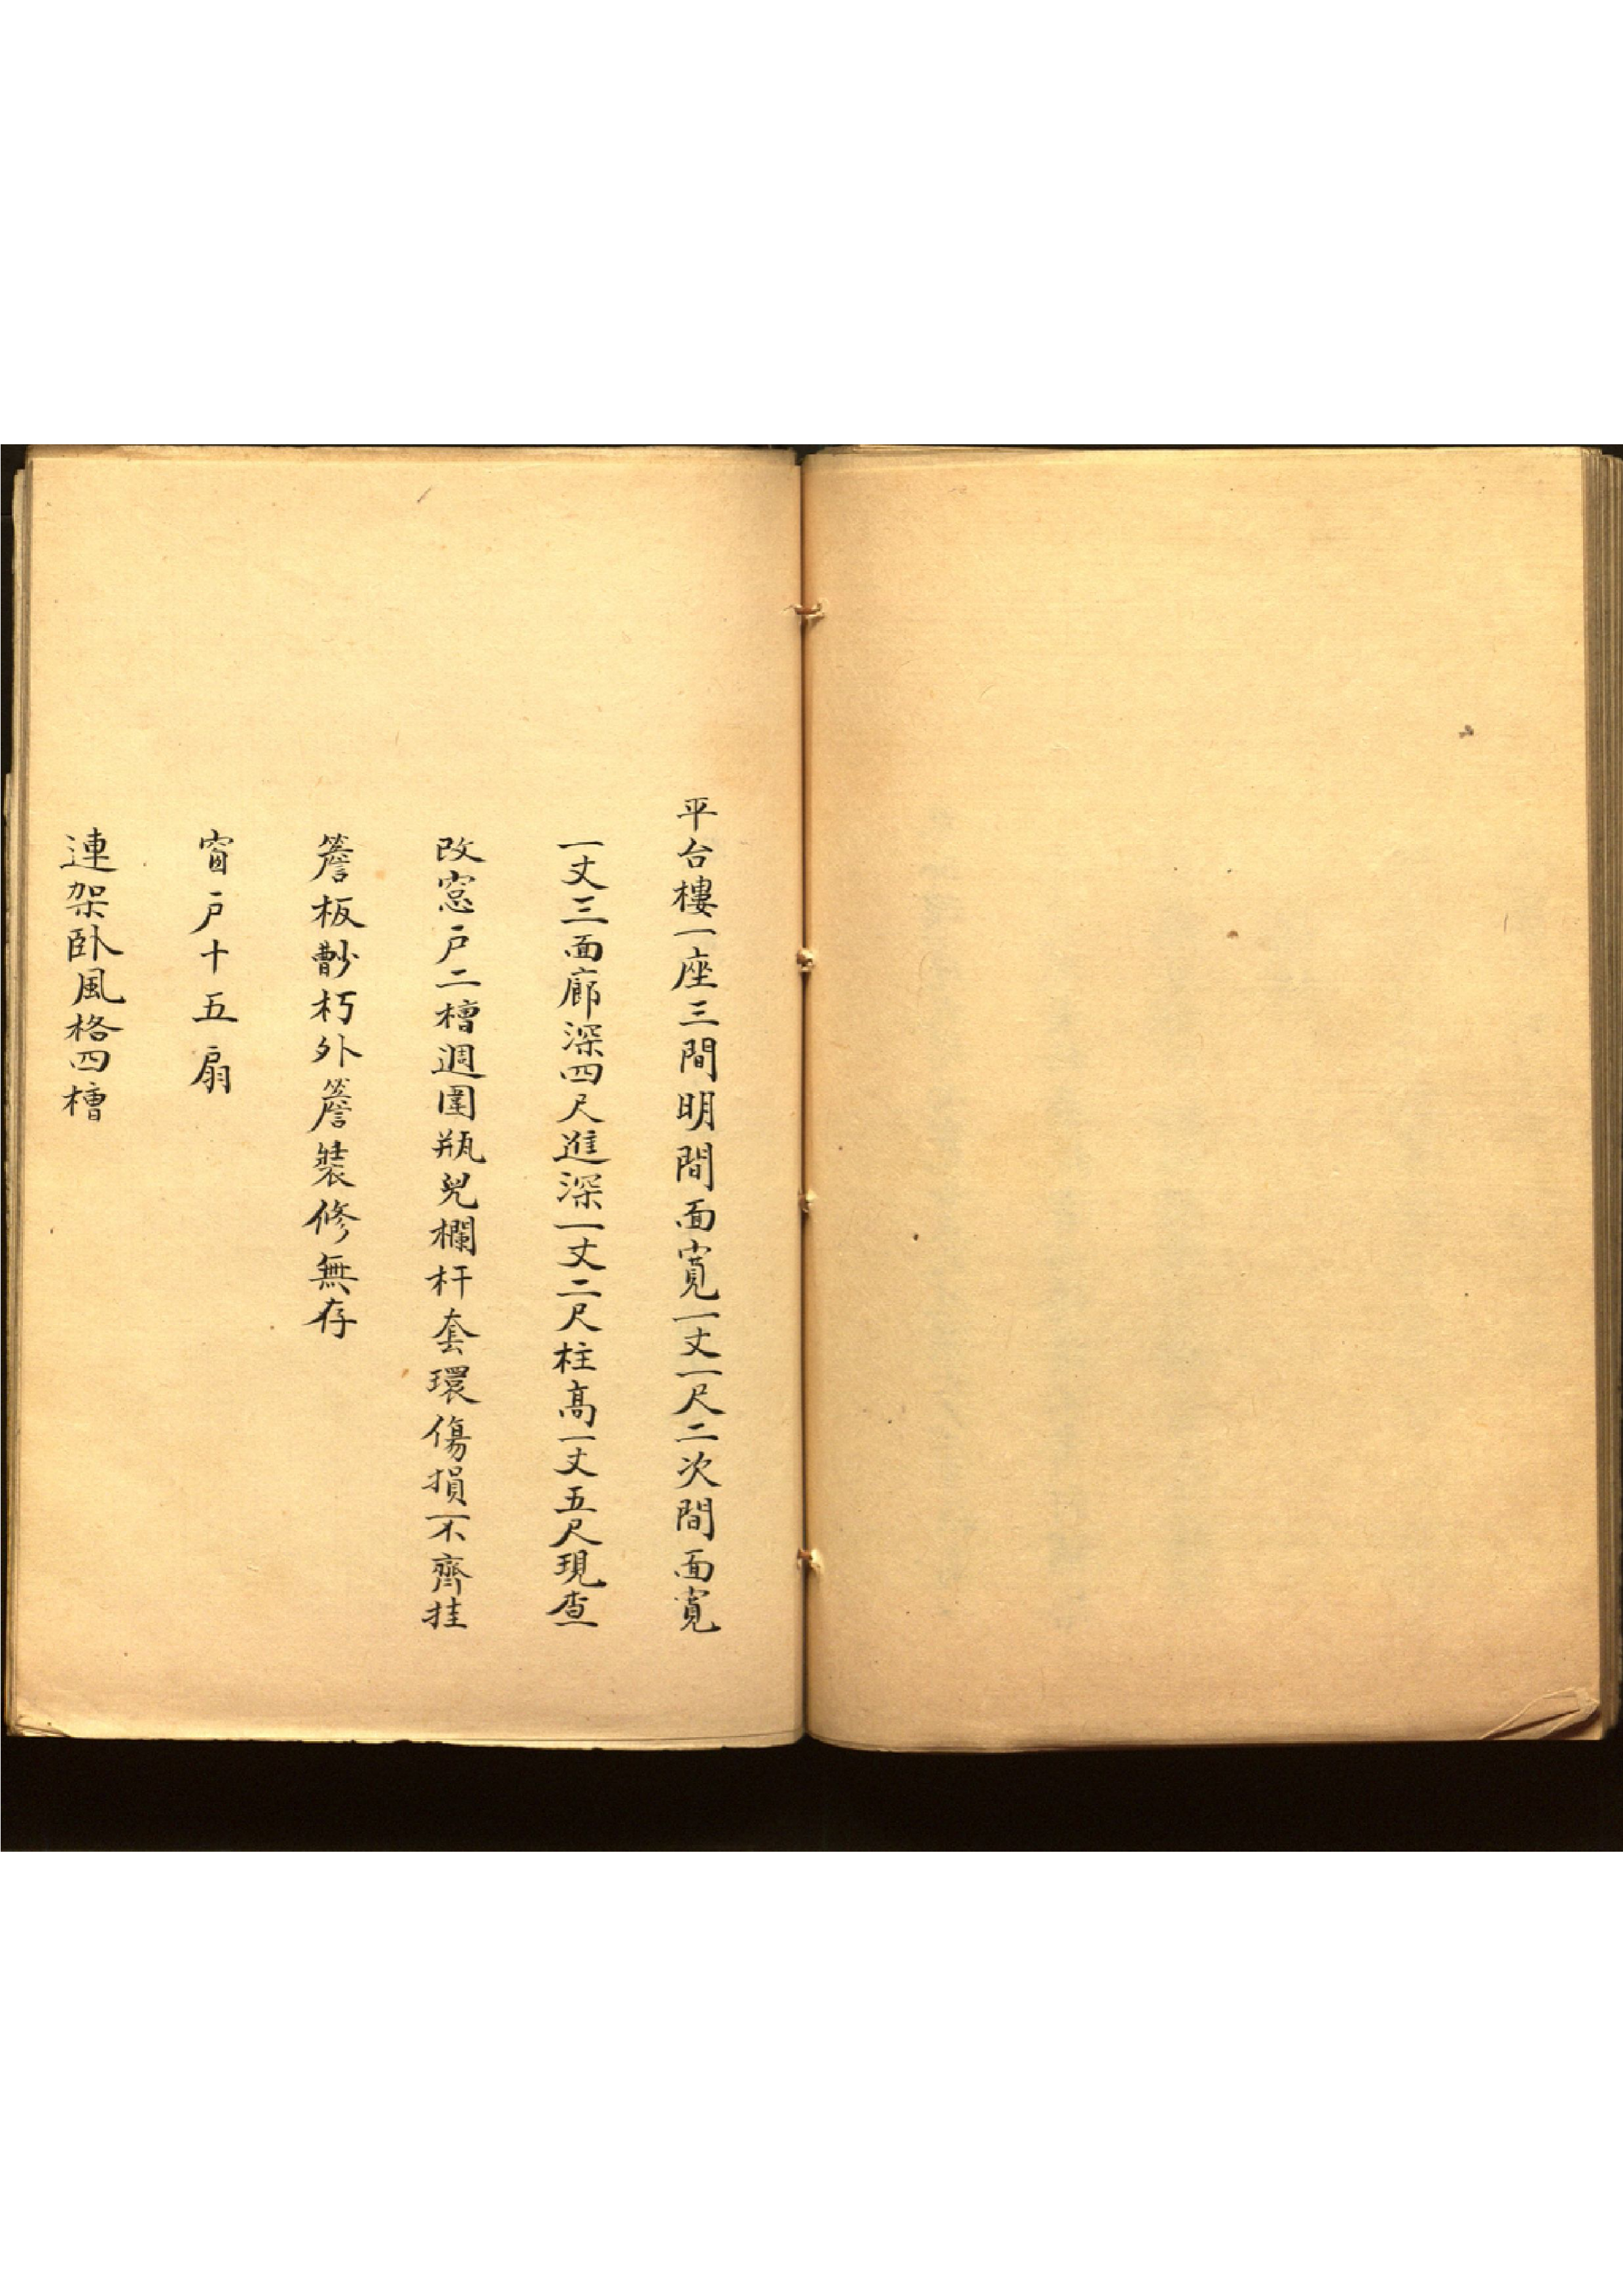 平台樓一座三間明間面寬一丈一尺二次間面寬
一丈三面廊深四尺進深一丈二尺柱高一丈五尺現查
改窓戶二槽週圍瓶兒欄杆套環傷損不齊挂
簷板朽外簷裝修無存
窗戶十五扇
連架卧風格四槽